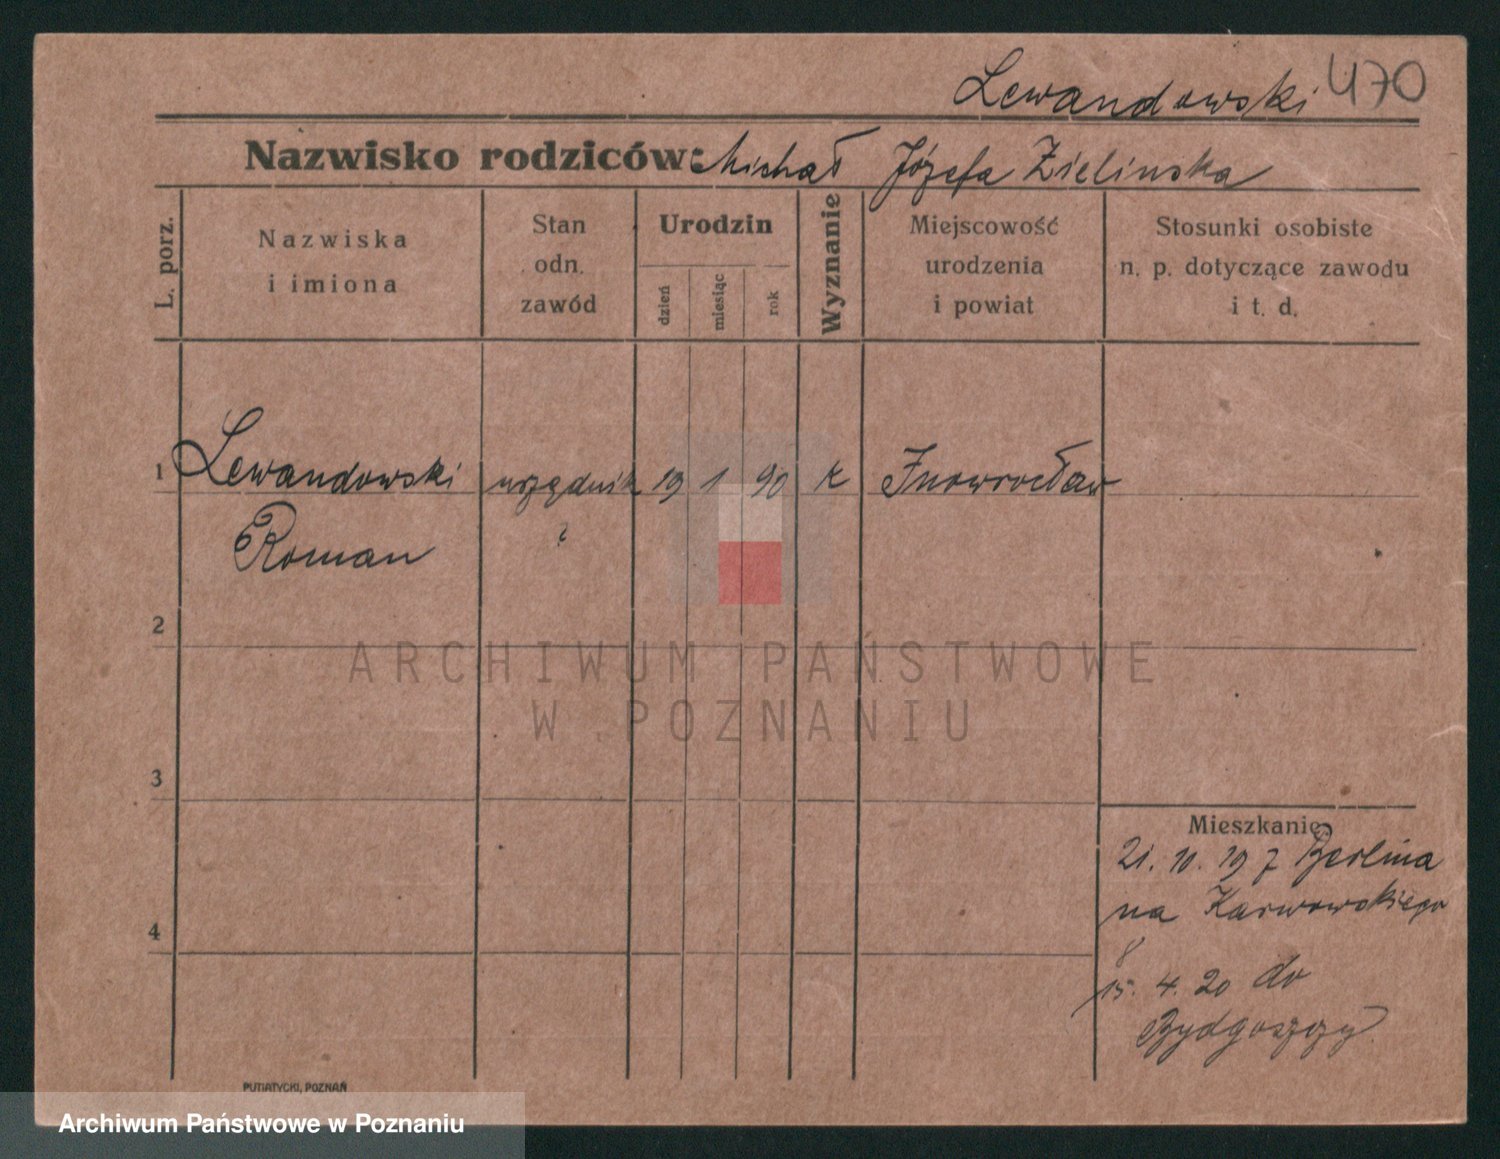 Lewandowski 470
Nazwisko rodziców: Michał Józefa Zielinska
L. porz.
Nazwiska
i imiona
Stan
odn.
zawód
Urodzin
dzień
miesiąc
rok
Wyznanie
Miejscowość
urodzenia
i powiat
Stosunki osobiste
n. p. dotyczące zawodu
i t. d.
1 Lewandowski urzędnik 19 1 90 k Inowrocław
Roman
2
3
4
Mieszkanie:
21. 10. 19 z Berlina
na Karwowskiego
8
15. 4. 20 do
Bydgoszczy
PUTIATYCKI, POZNAŃ
ARCHIWUM PAŃSTWOWE
W POZNANIU
Archiwum Państwowe w Poznaniu